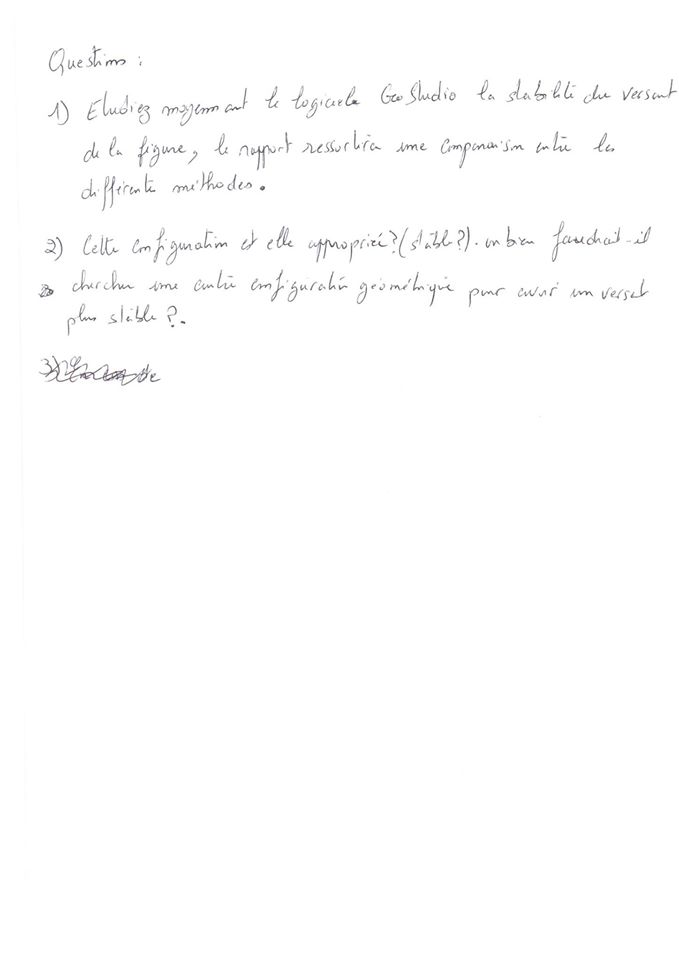 Questions :
1) Etudiez moyennant le logiciele GeoStudio la stabilité du versant
de la figure, le rapport ressortira une comparaison entre les
différente méthodes.
2) Cette configuration est elle appropriée? (stable?). ou bien faudrait-il
chercher une autre configuration géométrique pour avoir un verset
plus stable ?.
3)